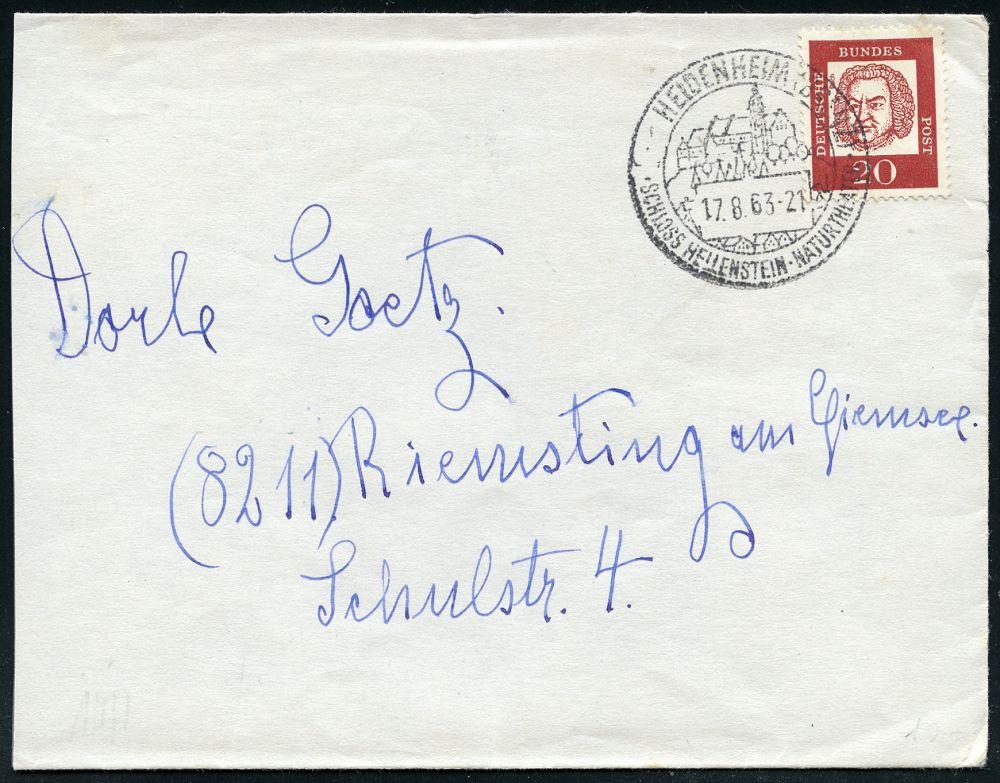 DEUTSCHE BUNDES POST
20
HEIDENHEIM
17.8.63-21
·SCHLOSS HELLENSTEIN·NATURTHEATER·
Dorle Goetz.
(8211) Riemsting am Giemsee.
Schulstr. 4.